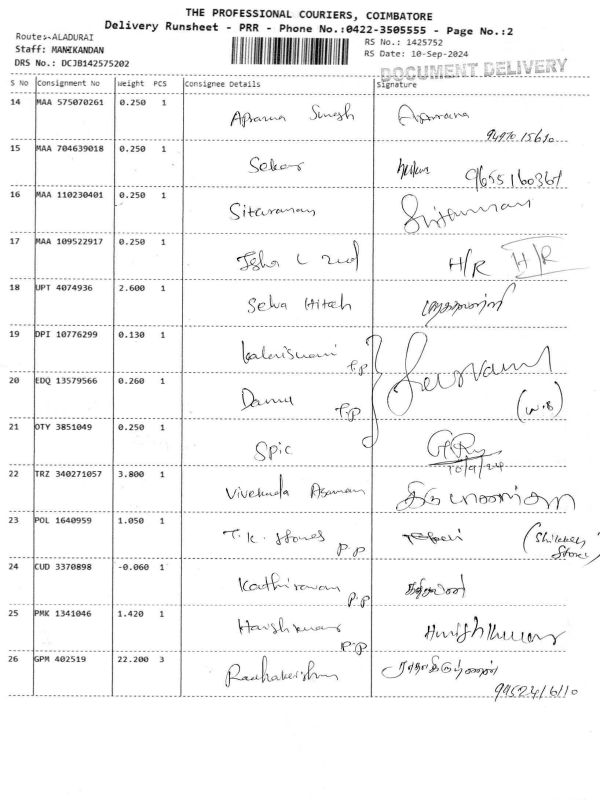 THE PROFESSIONAL COURIERS, COIMBATORE
Delivery Runsheet - PRR - Phone No.:0422-3505555 - Page No.:2
Route:-ALADURAI
RS No.: 1425752
Staff: MANIKANDAN
RS Date: 10-Sep-2024
DRS No.: DCJB142575202
DOCUMENT DELIVERY
S No Consignment No Weight PCS Consignee Details Signature
14 MAA 575070261 0.250 1 Aparna Singh Aparna
94970 15610
15 MAA 704639018 0.250 1 Sekar 9655160367
16 MAA 110230401 0.250 1 Sitaraman
17 MAA 109522917 0.250 1 Isha H/R H/R
18 UPT 4074936 2.600 1 Selva Hitech
19 DPI 10776299 0.130 1
20 EDQ 13579566 0.260 1 (W.B)
21 OTY 3851049 0.250 1 Spic
10/9/24
22 TRZ 340271057 3.800 1
23 POL 1640959 1.050 1 T.K. Stones P.P
24 CUD 3370898 -0.060 1 Kathiravan P.P
25 PMK 1341046 1.420 1 Harishkumar P.P Harishkumar
26 GPM 402519 22.200 3 Radhakrishnan ராதாகிருஷ்ணன்